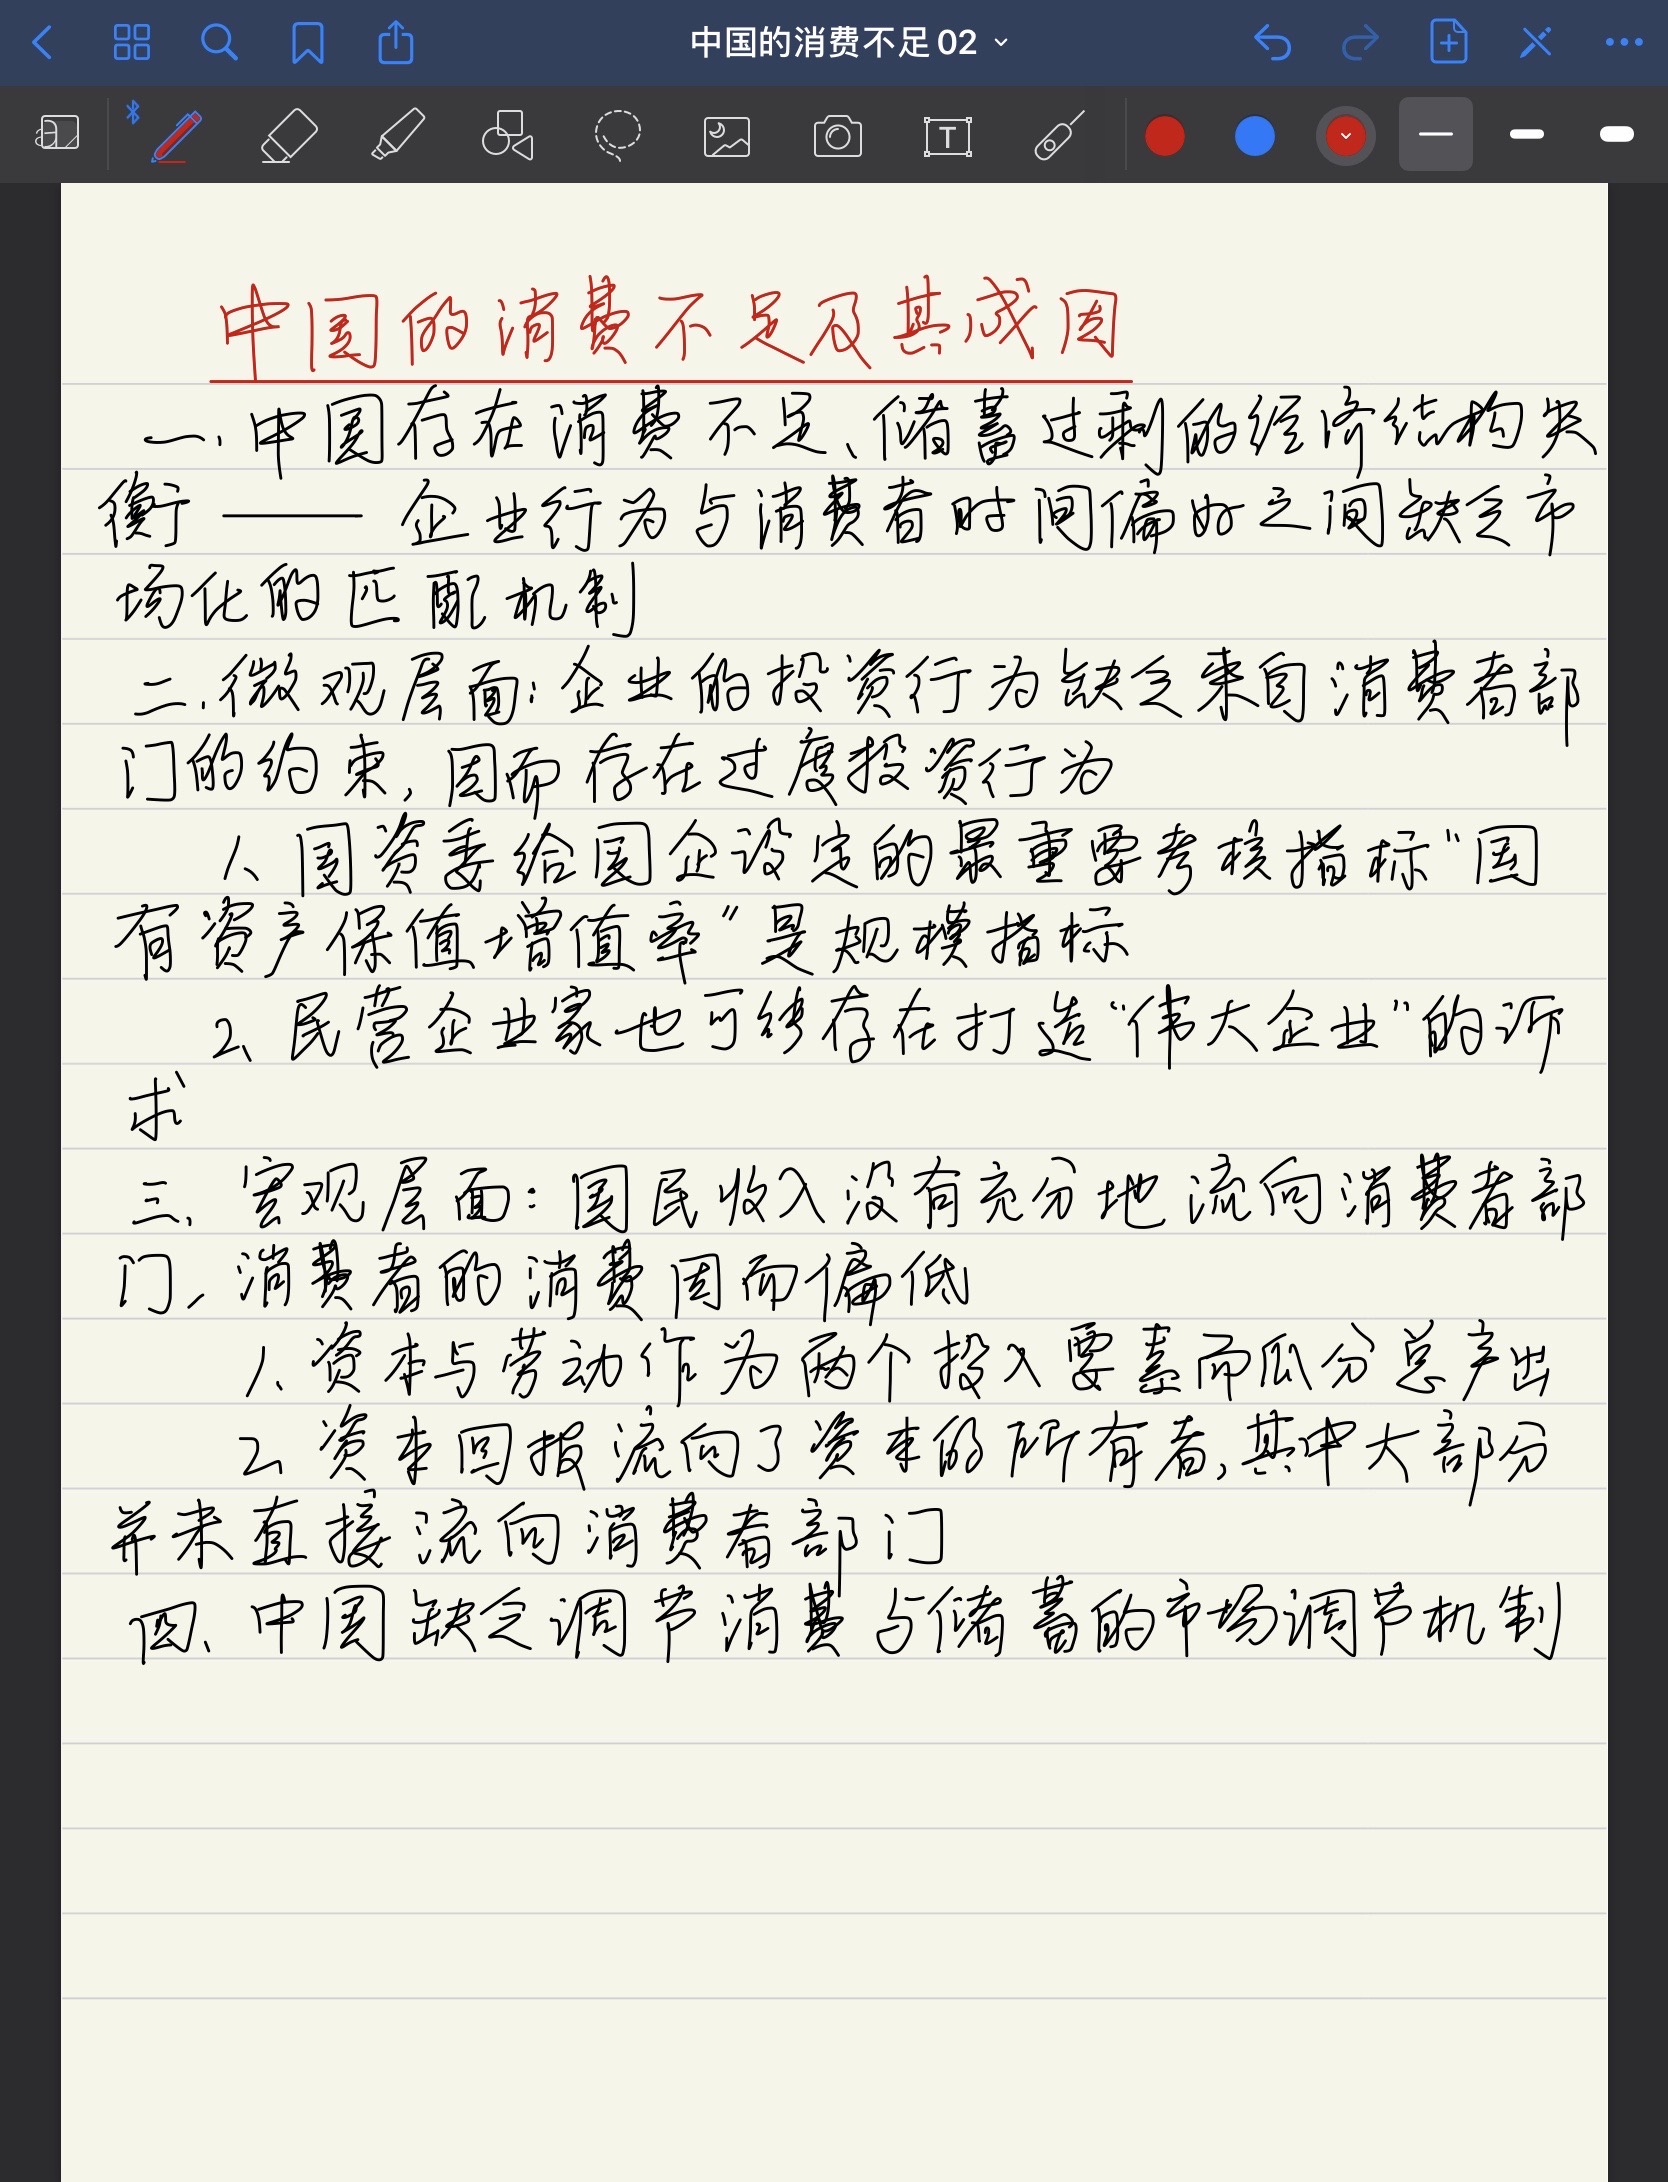 中国的消费不足 02
中国的消费不足及其成因
一、中国存在消费不足、储蓄过剩的经济结构失
衡 —— 企业行为与消费者时间偏好之间缺乏市
场化的匹配机制
二、微观层面：企业的投资行为缺乏来自消费者部
门的约束，因而存在过度投资行为
1、国资委给国企设定的最重要考核指标“国
有资产保值增值率”是规模指标
2、民营企业家也可能存在打造“伟大企业”的诉
求
三、宏观层面：国民收入没有充分地流向消费者部
门，消费者的消费因而偏低
1、资本与劳动作为两个投入要素而瓜分总产出
2、资本回报流向了资本的所有者，其中大部分
并未直接流向消费者部门
四、中国缺乏调节消费与储蓄的市场调节机制